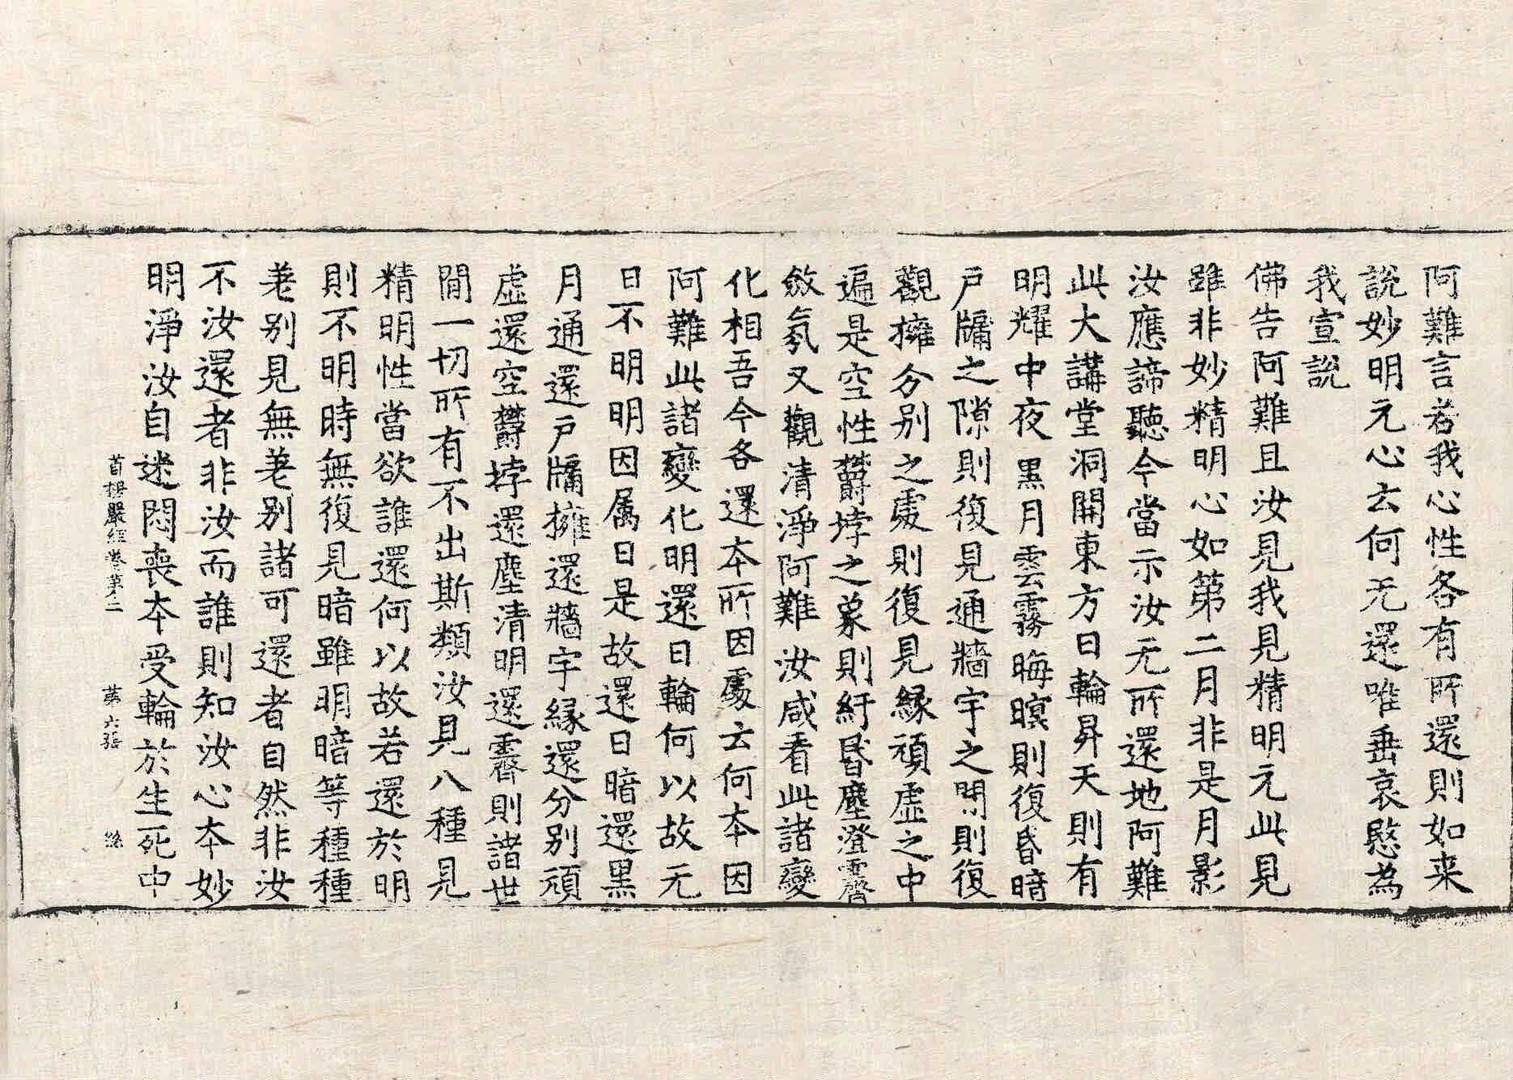 阿難言若我心性各有所還則如来
說妙明元心云何无還唯垂哀愍為
我宣說
佛告阿難且汝見我見精明元此見
雖非妙精明心如第二月非是月影
汝應諦聽今當示汝无所還地阿難
此大講堂洞開東方日輪昇天則有
明耀中夜黒月雲霧晦暝則復昏暗
戸牖之隙則復見通牆宇之間則復
觀擁分別之處則復見緣頑虛之中
遍是空性欝㘄之象則紆昏塵澄霽
斂氛又觀清淨阿難汝咸看此諸變
化相吾今各還本所因處云何本因
阿難此諸變化明還日輪何以故无
日不明明因属日是故還日暗還黒
月通還戸牖擁還牆宇緣還分別頑
虛還空欝㘄還塵清明還霽則諸世
間一切所有不出斯類汝見八種見
精明性當欲誰還何以故若還於明
則不明時無復見暗雖明暗等種種
差別見無差別諸可還者自然非汝
不汝還者非汝而誰則知汝心本妙
明淨汝自迷悶喪本受輪於生死中
首楞嚴経卷第二 第六張